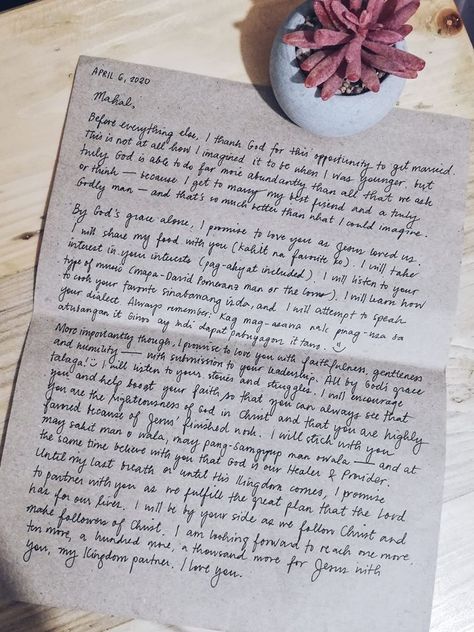 APRIL 6, 2020
Mahal,
Before everything else, I thank God for this opportunity to get married.
This is not at all how I imagined it to be when I was younger, but
truly God is able to do far more abundantly than all that we ask
or think — because I get to marry my best friend and a truly
Godly man — and that's so much better than what I could imagine.
By God's grace alone, I promise to love you as Jesus loved us.
I will share my food with you (kahit na favorite ko). I will take
interest in your interests (pag-akyat included). I will listen to your
type of music (mapa-David Pomeranz man or the). I will learn how
to cook your favorite sinabawang isda, and I will attempt to speak
your dialect. Always remember:
More importantly though, I promise to love you with faithfulness, gentleness
and humility — with submission to your leadership. All by God's grace
talaga! I will listen to your stories and struggles. I will encourage
you and help boost your faith so that you can always see that
you are the righteousness of God in Christ and that you are highly
favored because of Jesus' finished work. I will stick with you
may sakit man o wala, may pang-samgyup man o wala — and at
the same time believe with you that God is our Healer & Provider.
Until my last breath or until His Kingdom comes, I promise
to partner with you as we fulfill the great plan that the Lord
has for our lives. I will be by your side as we follow Christ and
make followers of Christ. I am looking forward to reach one more,
ten more, a hundred more, a thousand more for Jesus with
you, my Kingdom partner. I love you.